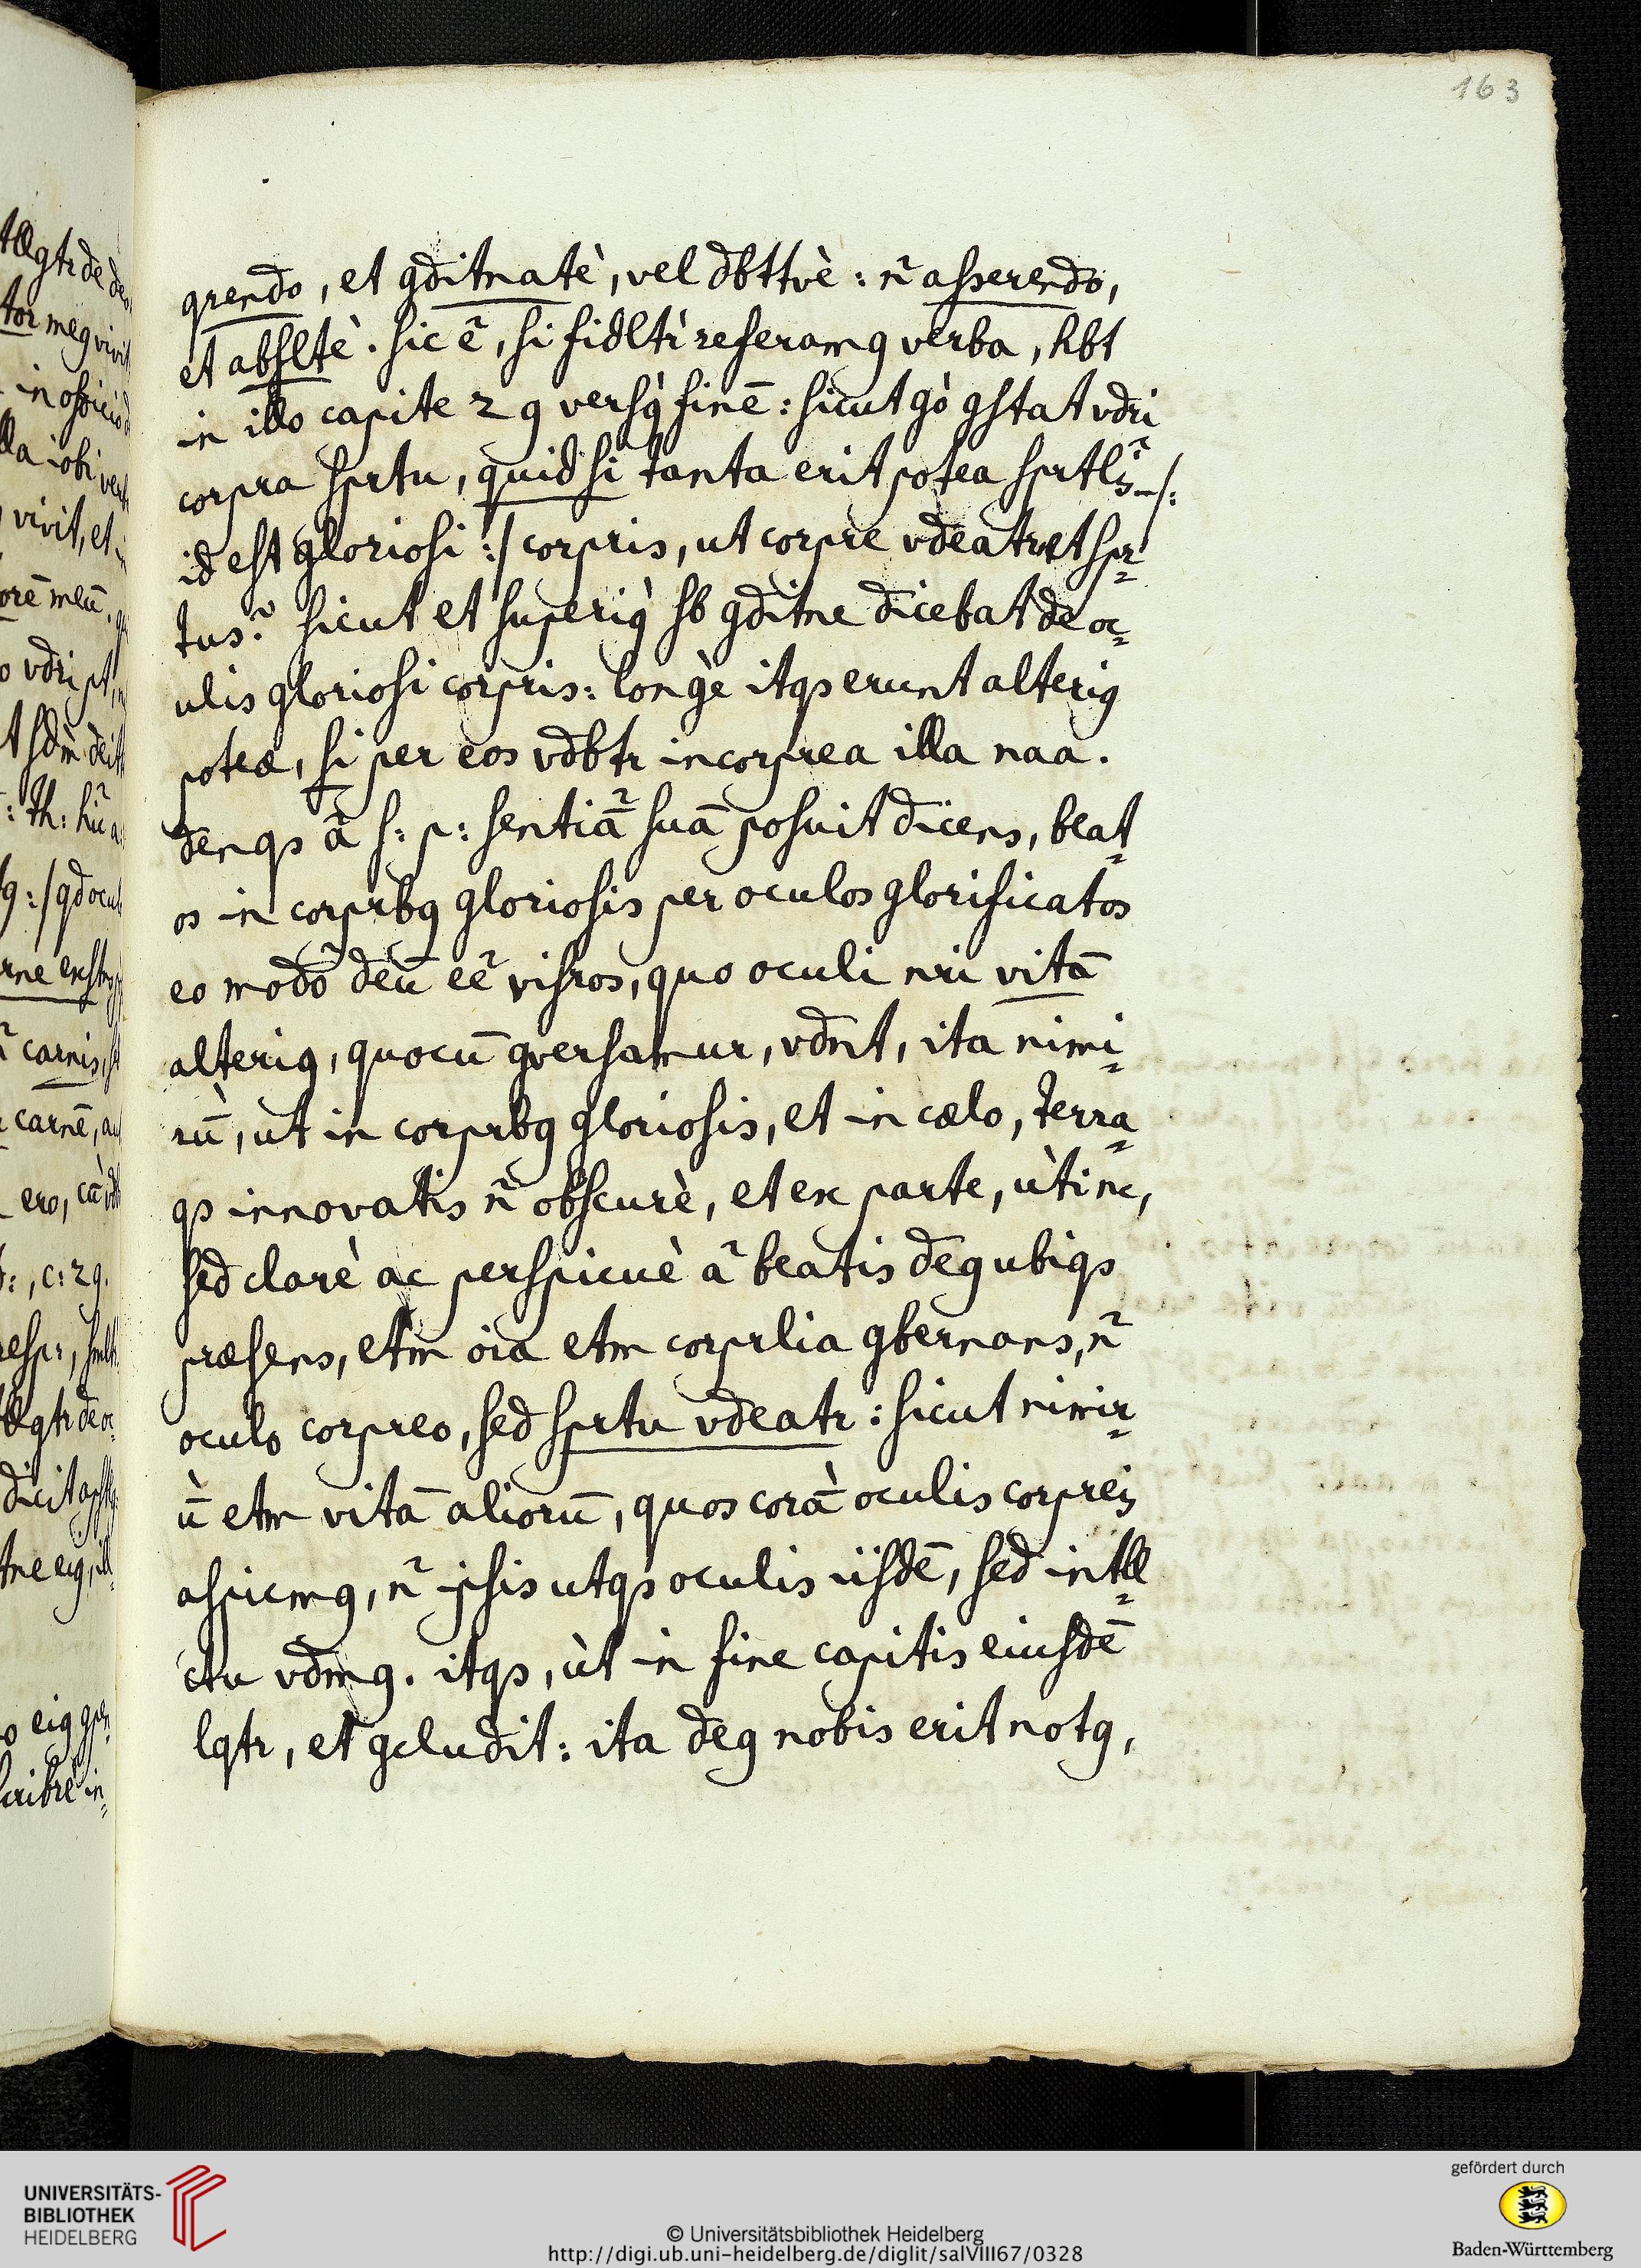 163
qrendo, et gditnatè, vel dbttvè: n̄ asserendo,
et absltè. sic ē, si fidltr̀ referamg verba, hbt
in illo capite 29 versg̀ finē: sicut gò gstat vdri
corpra sprtu, quid si tanta erit potea sprtl̄z /:
id est gloriosi :/ corpris, ut corpre vdeatr et spr=
tus? sicut et superig̀ sb gditne dicebat de oc=
ulis gloriosi corpris: longè itqs erunt alterig
poteæ, si per eos vdbtr incorprea illa naa.
denqs ā s: p: sentiā suā posuit dicens, beat=
os in corprbg gloriosis per oculos glorificatos
eo modo deū eē visros, quo oculi nri vitā
alterig, quocū gversamur, vdnt, ita nimi=
rū, ut in corprbg gloriosis, et in cælo, terra=
qs innovatis n̄ obscurè, et ex parte, ùti nc,
sed clarè ac perspicuè ā beatis deg ubiqs
præsens, etm oia etm corprlia gbernans, n̄
oculo corpreo, sed sprtu vdeatr: sicut nimir=
ū etm vitā aliorū, quos corā oculis corpreis
aspicmg, n̄ ipsis utqs oculis iisdē, sed intll=
ctu vdmg. itqs, ùt in fine capitis eiusdē
lqtr, et gcludit: ita deg nobis erit notg,
UNIVERSITÄTS-
BIBLIOTHEK
HEIDELBERG
© Universitätsbibliothek Heidelberg
http://digi.ub.uni-heidelberg.de/diglit/salVIII67/0328
gefördert durch
Baden-Württemberg